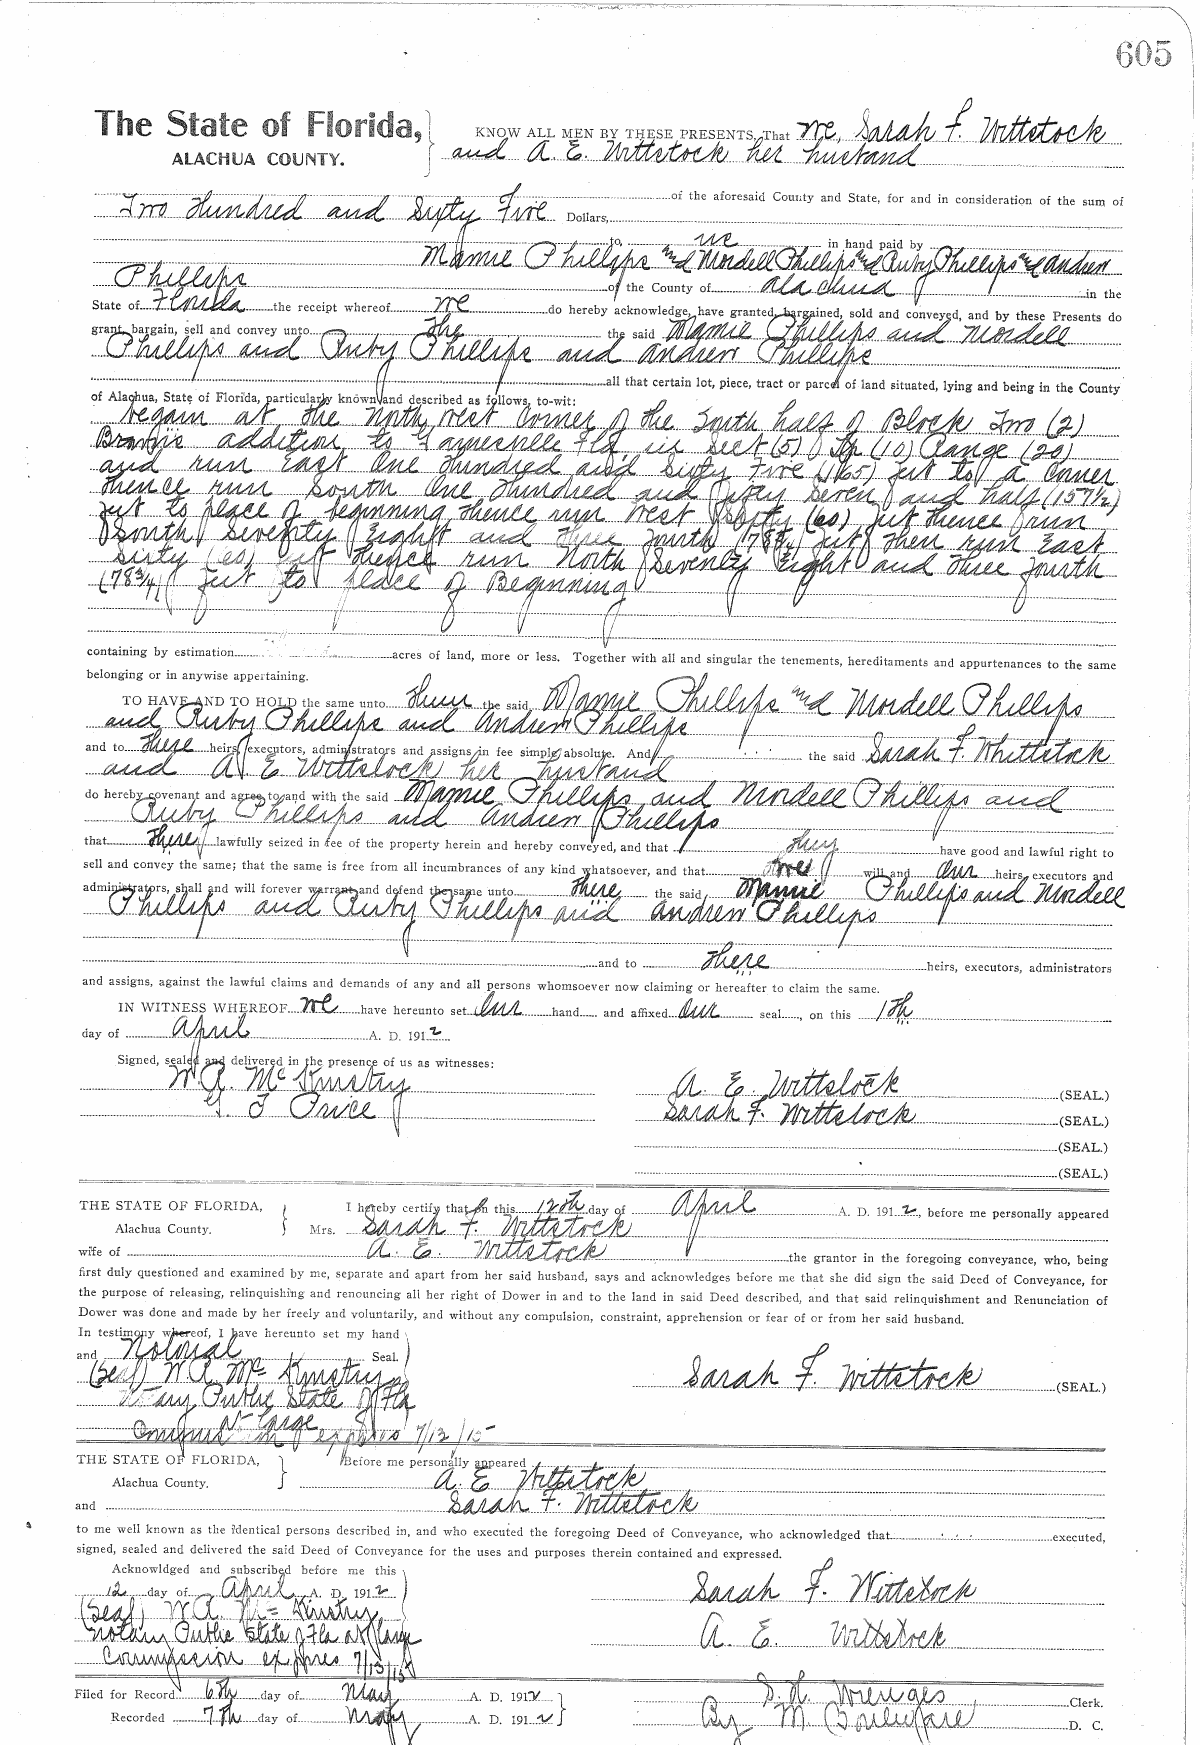 605
The State of Florida,
ALACHUA COUNTY.
KNOW ALL MEN BY THESE PRESENTS, That We, Sarah F. Wittstock
and A. E. Wittstock her husband
of the aforesaid County and State, for and in consideration of the sum of
Two Hundred and Sixty Five Dollars,
to we in hand paid by
Mamie Phillips and Mordell Phillips and Ruby Phillips and Andrew
Phillips of the County of Alachua in the
State of Florida the receipt whereof we do hereby acknowledge, have granted, bargained, sold and conveyed, and by these Presents do
grant, bargain, sell and convey unto the the said Mamie Phillips and Mordell
Phillips and Ruby Phillips and Andrew Phillips
all that certain lot, piece, tract or parcel of land situated, lying and being in the County
of Alachua, State of Florida, particularly known and described as follows, to-wit:
begain at the North West Corner of the South half of Block Two (2)
Brown's addition to Gainesville Fla. in Sect (5) Tp (10) Range (20)
and run East One Hundred and Sixty Five (165) fut to a Corner
thence run South One Hundred and fifty Seven and half (157½)
fut to place of beginning thence run West Sixty (60) fut thence run
South Seventy Eight and three fourth (78¾) fut then run East
Sixty (60) fut thence run North Seventy Eight and three fourth
(78¾) fut to place of Beginning
containing by estimation acres of land, more or less. Together with all and singular the tenements, hereditaments and appurtenances to the same
belonging or in anywise appertaining.
TO HAVE AND TO HOLD the same unto them the said Mamie Phillips and Mordell Phillips
and Ruby Phillips and Andrew Phillips
and to there heirs, executors, administrators and assigns in fee simple absolute. And the said Sarah F. Whittstock
and A. E Wittstock her husband
do hereby covenant and agree to and with the said Mamie Phillips and Mordell Phillips and
Ruby Phillips and Andrew Phillips
that there lawfully seized in fee of the property herein and hereby conveyed, and that they have good and lawful right to
sell and convey the same; that the same is free from all incumbrances of any kind whatsoever, and that we will and our heirs, executors and
administrators, shall and will forever warrant and defend the same unto there the said Mamie Phillips and Mordell
Phillips and Ruby Phillips and Andrew Phillips
and to there heirs, executors, administrators
and assigns, against the lawful claims and demands of any and all persons whomsoever now claiming or hereafter to claim the same.
IN WITNESS WHEREOF we have hereunto set our hand and affixed our seal, on this 1th
day of April A. D. 1912
Signed, sealed and delivered in the presence of us as witnesses:
W. A. Mc Kinstry
G. T Price
A. E. Wittstock (SEAL.)
Sarah F. Wittstock (SEAL.)
(SEAL.)
(SEAL.)
THE STATE OF FLORIDA,
Alachua County.
I hereby certify that on this 12th day of April A. D. 1912, before me personally appeared
Mrs. Sarah F. Wittstock
wife of A. E. Wittstock the grantor in the foregoing conveyance, who, being
first duly questioned and examined by me, separate and apart from her said husband, says and acknowledges before me that she did sign the said Deed of Conveyance, for
the purpose of releasing, relinquishing and renouncing all her right of Dower in and to the land in said Deed described, and that said relinquishment and Renunciation of
Dower was done and made by her freely and voluntarily, and without any compulsion, constraint, apprehension or fear of or from her said husband.
In testimony whereof, I have hereunto set my hand
and Notorial Seal.
(Seal) W A Mc Kinstry
Notary Public State of Fla
at large
Commission expires 7/13/15
Sarah F. Wittstock (SEAL.)
THE STATE OF FLORIDA,
Alachua County.
Before me personally appeared
A. E Wittstock
and Sarah F. Wittstock
to me well known as the identical persons described in, and who executed the foregoing Deed of Conveyance, who acknowledged that executed,
signed, sealed and delivered the said Deed of Conveyance for the uses and purposes therein contained and expressed.
Acknowldged and subscribed before me this
12 day of April A. D. 1912
(Seal) W. A. Mc Kinstry
Notary Public State of Fla at large
Commission expires 7/13/15
Sarah F. Wittstock
A. E. Wittstock
Filed for Record 6th day of May A. D. 1912
Recorded 7th day of May A. D. 1912
S. H. Wienges Clerk.
By M. D. C.